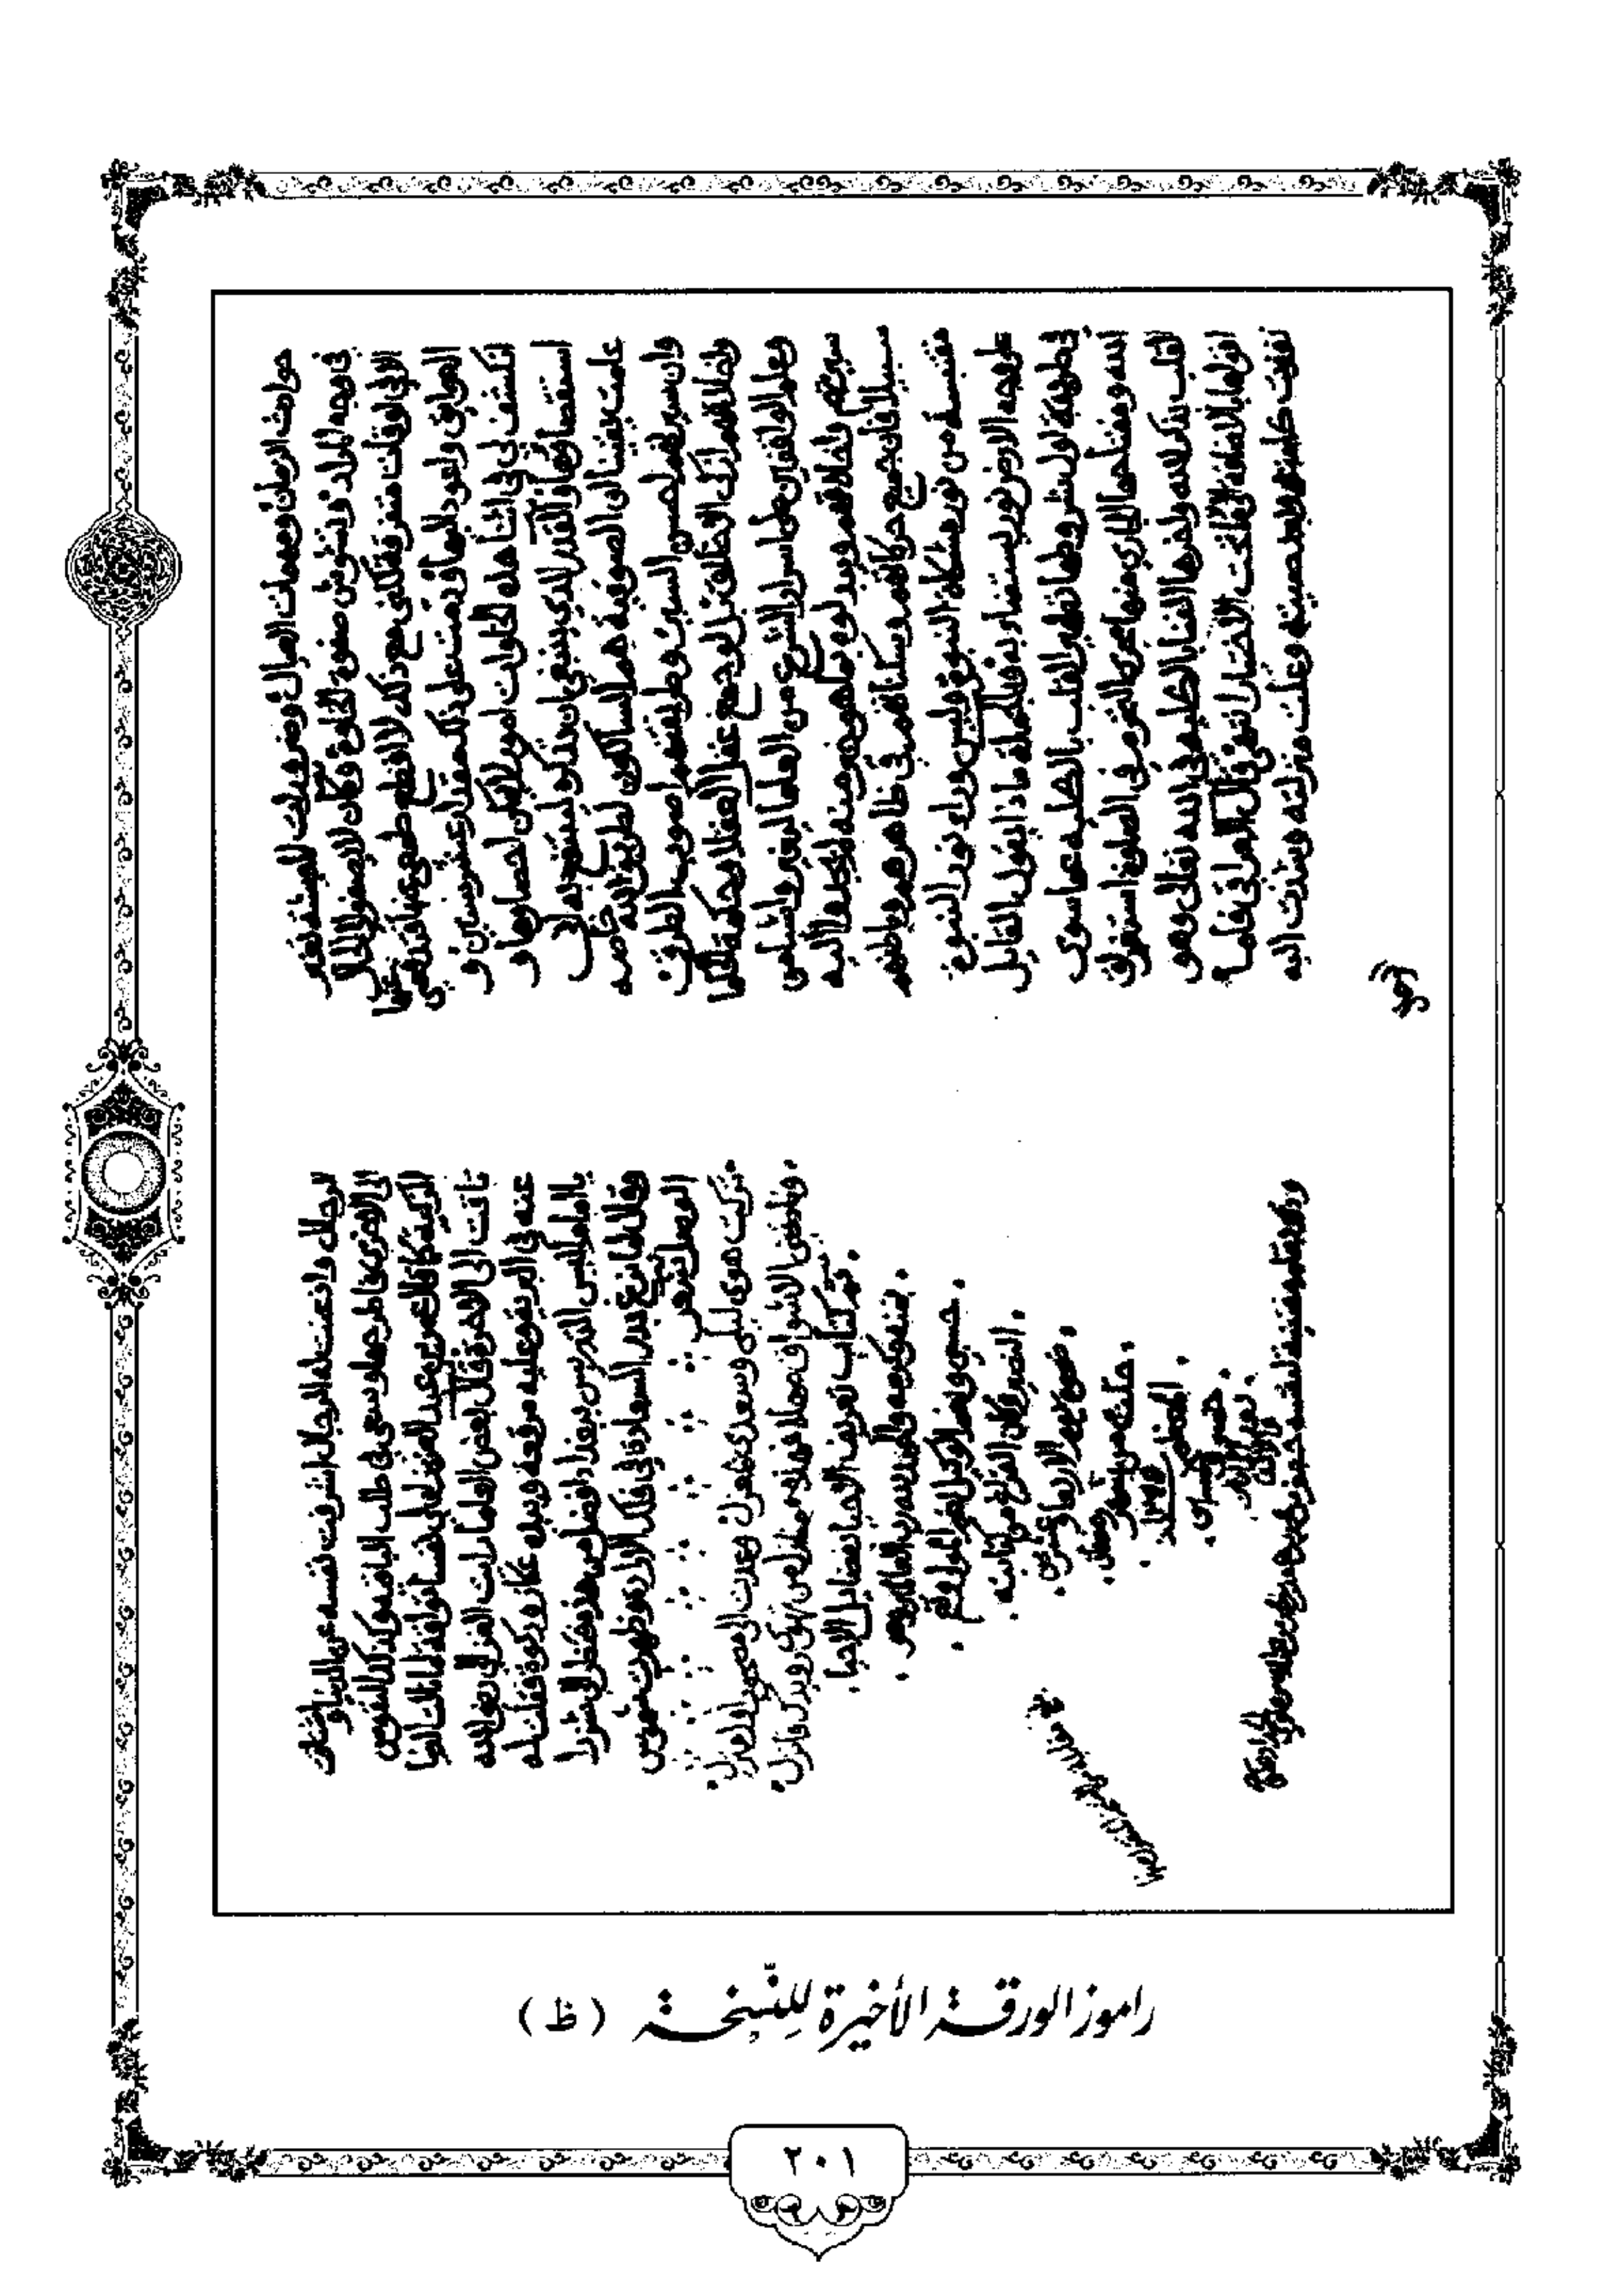 حوادث الزمان ومهمات العيال وضرورات المعيشة تغير
في وجه المراد وتشوش صفوة الخلوة وكان لا يصفو لي الحال
الا في اوقات متفرقة لكني مع ذلك لا اقطع طمعي عنها فتدفعني عنها
العوايق واعود اليها ودمت على ذلك مقدار عشر سنين و
انكشف لي في اثنا هذه الخلوات امور لا يمكن احصاوها و
استقصاوها والقدر الذي ينبغي ان نذكره لينتفع به اني
علمت يقينا ان الصوفية هم السالكون لطريق الله خاصة
وان سيرتهم احسن السير وطريقتهم اصوب الطرق
واخلاقهم ازكى الاخلاق بل لو جمع عقل العقلا وحكمة الحكما
وعلم الواقفين على اسرار الشرع من العلما ليغيروا شيا من
سيرتهم واخلاقهم ويبدلوه بما هو خير منه لم يجدوا اليه
سبيلا فان جميع حركاتهم وسكناتهم في ظاهرهم وباطنهم
مقتبسة من نور مشكاة النبوة وليس وراء نور النبوة
على وجه الارض نور يستضاء به وبالجملة ماذا يقول القايل
في طريقة اول شروطها تطهير القلب بالكلية عما سوى
الله ومفتاحها الجاري منها مجرى التحرم في الصلوة استغراق
القلب بذكر الله واخرها الفنا بالكلية في الله تعالى وهو
اقواها بالاضافة الى ما تحت الاختيار انتهى قال العراقي فلما
نفذت كلمته وبعد صيته وعلت منزلته وشدت اليه
الرحال واذعنت له الرجال شرفت نفسه عن الدنيا واشتاقت
الى الاخرى فاطرحها وسعى في طلب الباقية وكذلك النفوس
الزكية كما قال عمر بن عبد العزيز ان لي نفسا تواقة لما نالت الدنيا
تاقت الى الاخرة قال بعض العلما رايت الغزالي رضي الله
عنه في البرية وعليه مرقعة وبيده عكاز وركوة فقلت له
يا امام اليس التدريس ببغداد افضل من هذا فنظر الي شزرا
وقال لما بزغ بدر السعادة في فلك الارادة وظهرت شموس
الوصل
تركت هوى ليلى وسعدى بمعزل وعدت الى مصحوب اول منزل
ونادتني الاشواق مهلا فهذه منازل من تهوى رويدك فانزل
تم كتاب تعريف الاحيا بفضايل الاحيا
بمنه وكرمه والحمد لله رب العالمين وهو
حسبي ونعم الوكيل نعم المولى ونعم
النصير وكان الفراغ من كتابته
ضحى يوم الاربعا وعشرين
خلت من شهر رمضان
المعظم
راموز الورقة الأخيرة للنسخة ( ظ )
٢٠١